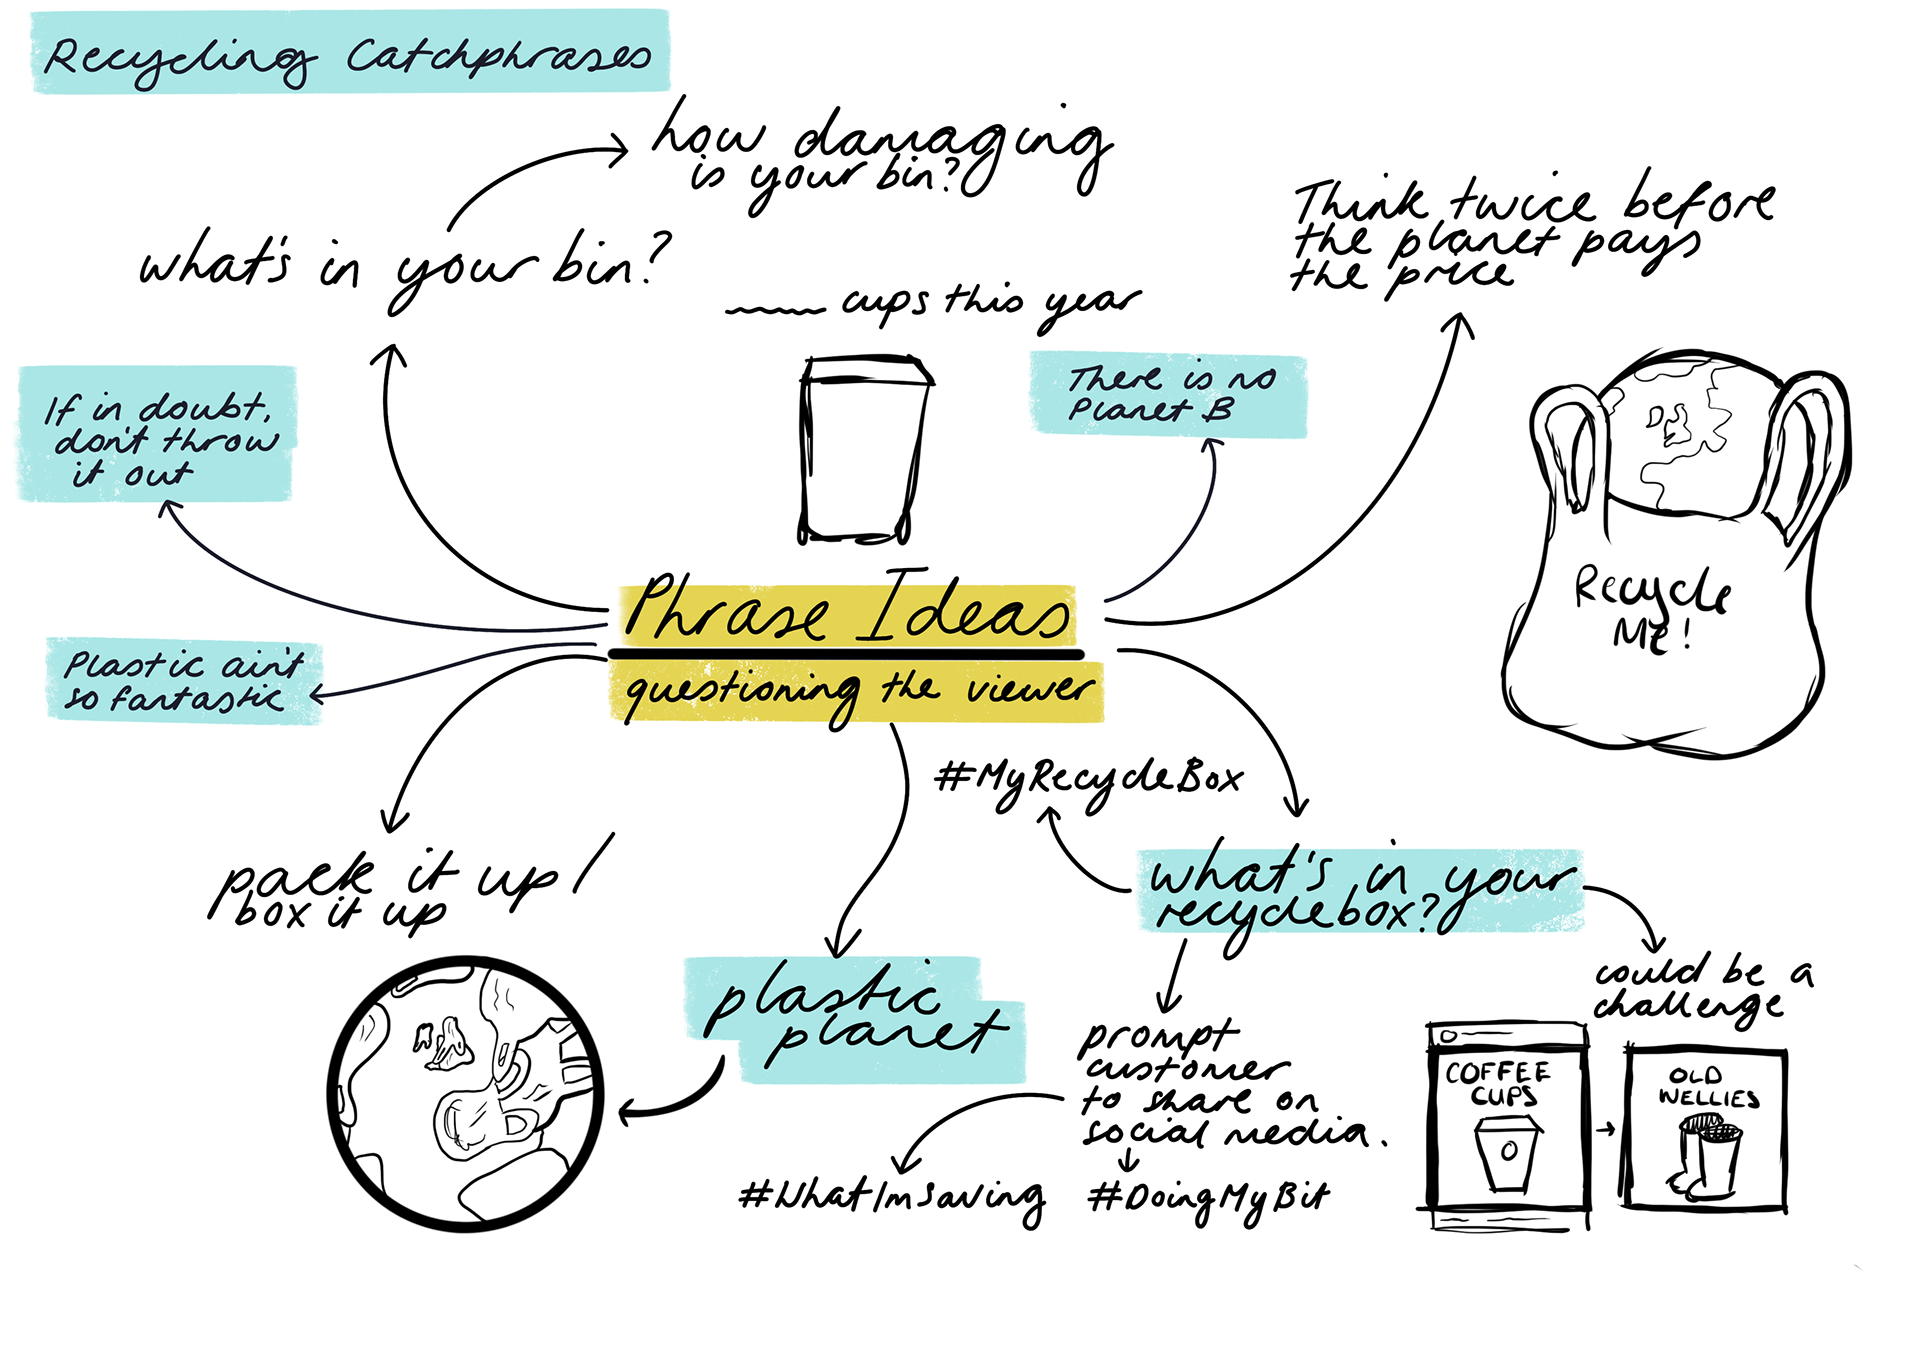 Recycling Catchphrases
how damaging
is your bin?
what's in your bin?
Think twice before
the planet pays
the price
cups this year
There is no
Planet B
If in doubt,
don't throw
it out
Recycle
Me!
Phrase Ideas
questioning the viewer
Plastic ain't
so fantastic
#MyRecycleBox
pack it up/
box it up
what's in your
recyclebox?
could be a
challenge
plastic
planet
prompt
customer
to share on
social media.
COFFEE
CUPS
OLD
WELLIES
#WhatImSaving
#DoingMyBit